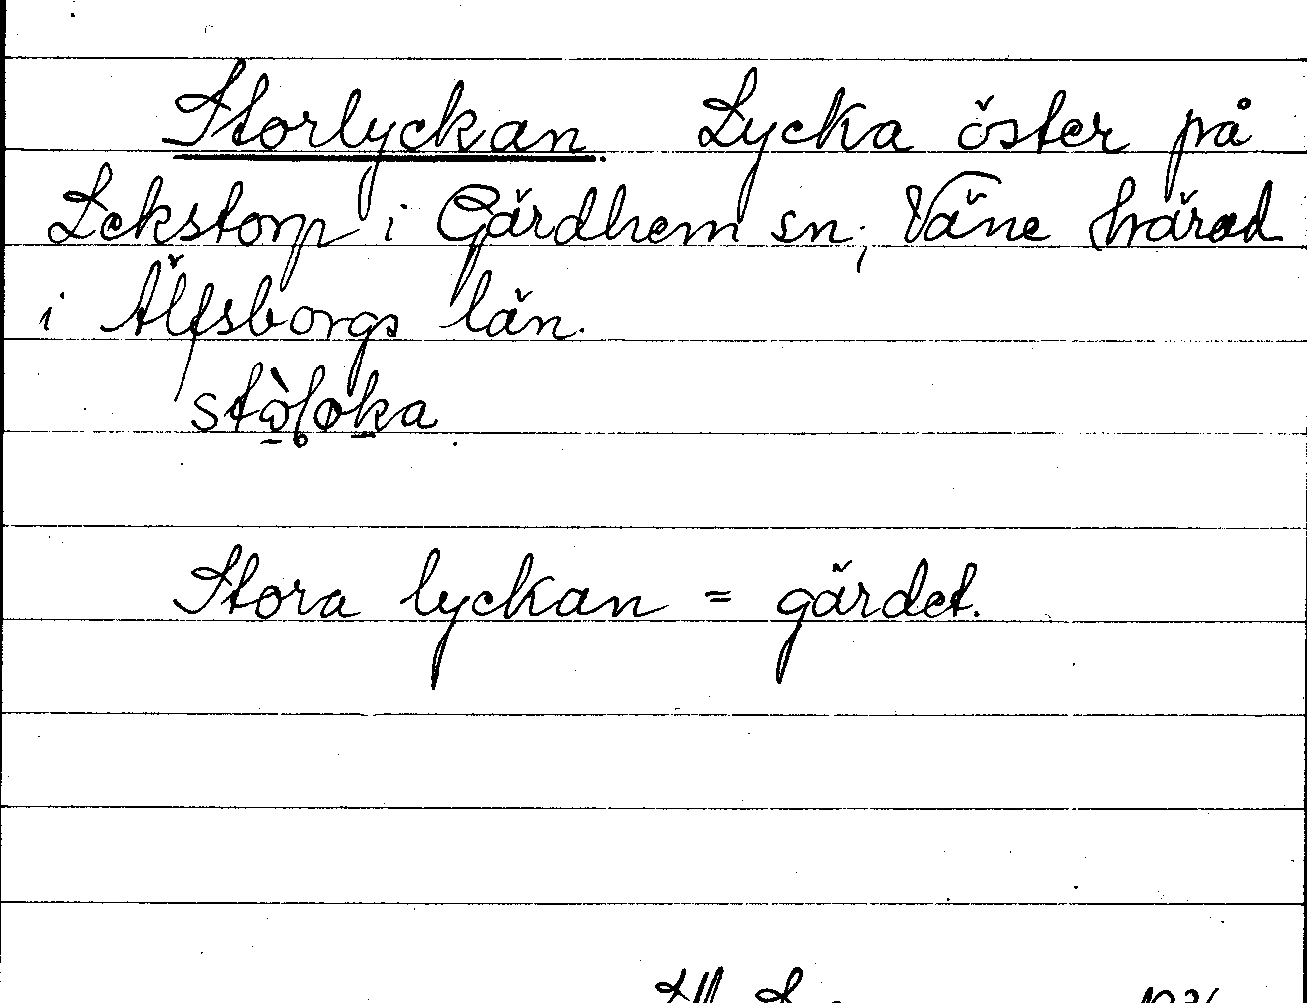 Storlyckan. Lycka öster på
Lekstorp i Gärdhem sn, Väne härad
i Älfsborgs län.
Stora lyckan = gärdet.